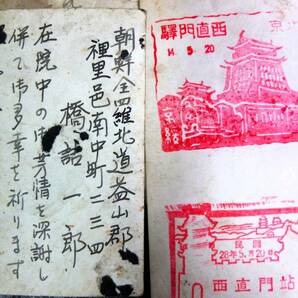 朝鮮全羅北道益山郡
裡里邑南中町三三四
橋詰一郎
在院中の御芳情を深謝し
併て御多幸を祈ります
西直門驛
14.5.20
民國
28年5月20日
西直門站